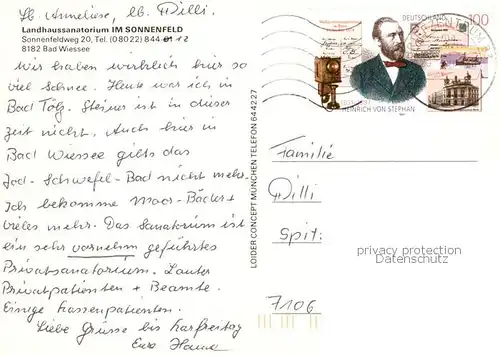 Lb. Anneliese, lb. Willi.
Landhaussanatorium IM SONNENFELD
Sonnenfeldweg 20, Tel. (0 80 22) 844 01 12
8182 Bad Wiessee
wir haben wirklich hier so
viel Schnee. Heute war ich in
Bad Tölz. Steiner ist in dieser
Zeit nicht. Auch hier in
Bad Wiessee gilt das
Jod-Schwefel-Bad nicht mehr.
Ich bekomme Moor-Bäder +
vieles mehr. Das Sanatorium ist
ein sehr vornehm geführtes
Privatsanatorium. Lauter
Privatpatienten + Beamte.
Einige Kassenpatienten.
Liebe Grüsse bis Karfreitag
Eure
LOIDER CONCEPT MÜNCHEN TELEFON 644227
DEUTSCHE
100
1831-1897
HEINRICH VON STEPHAN
Familie
Willi
Spit:
7106
privacy protection
Datenschutz